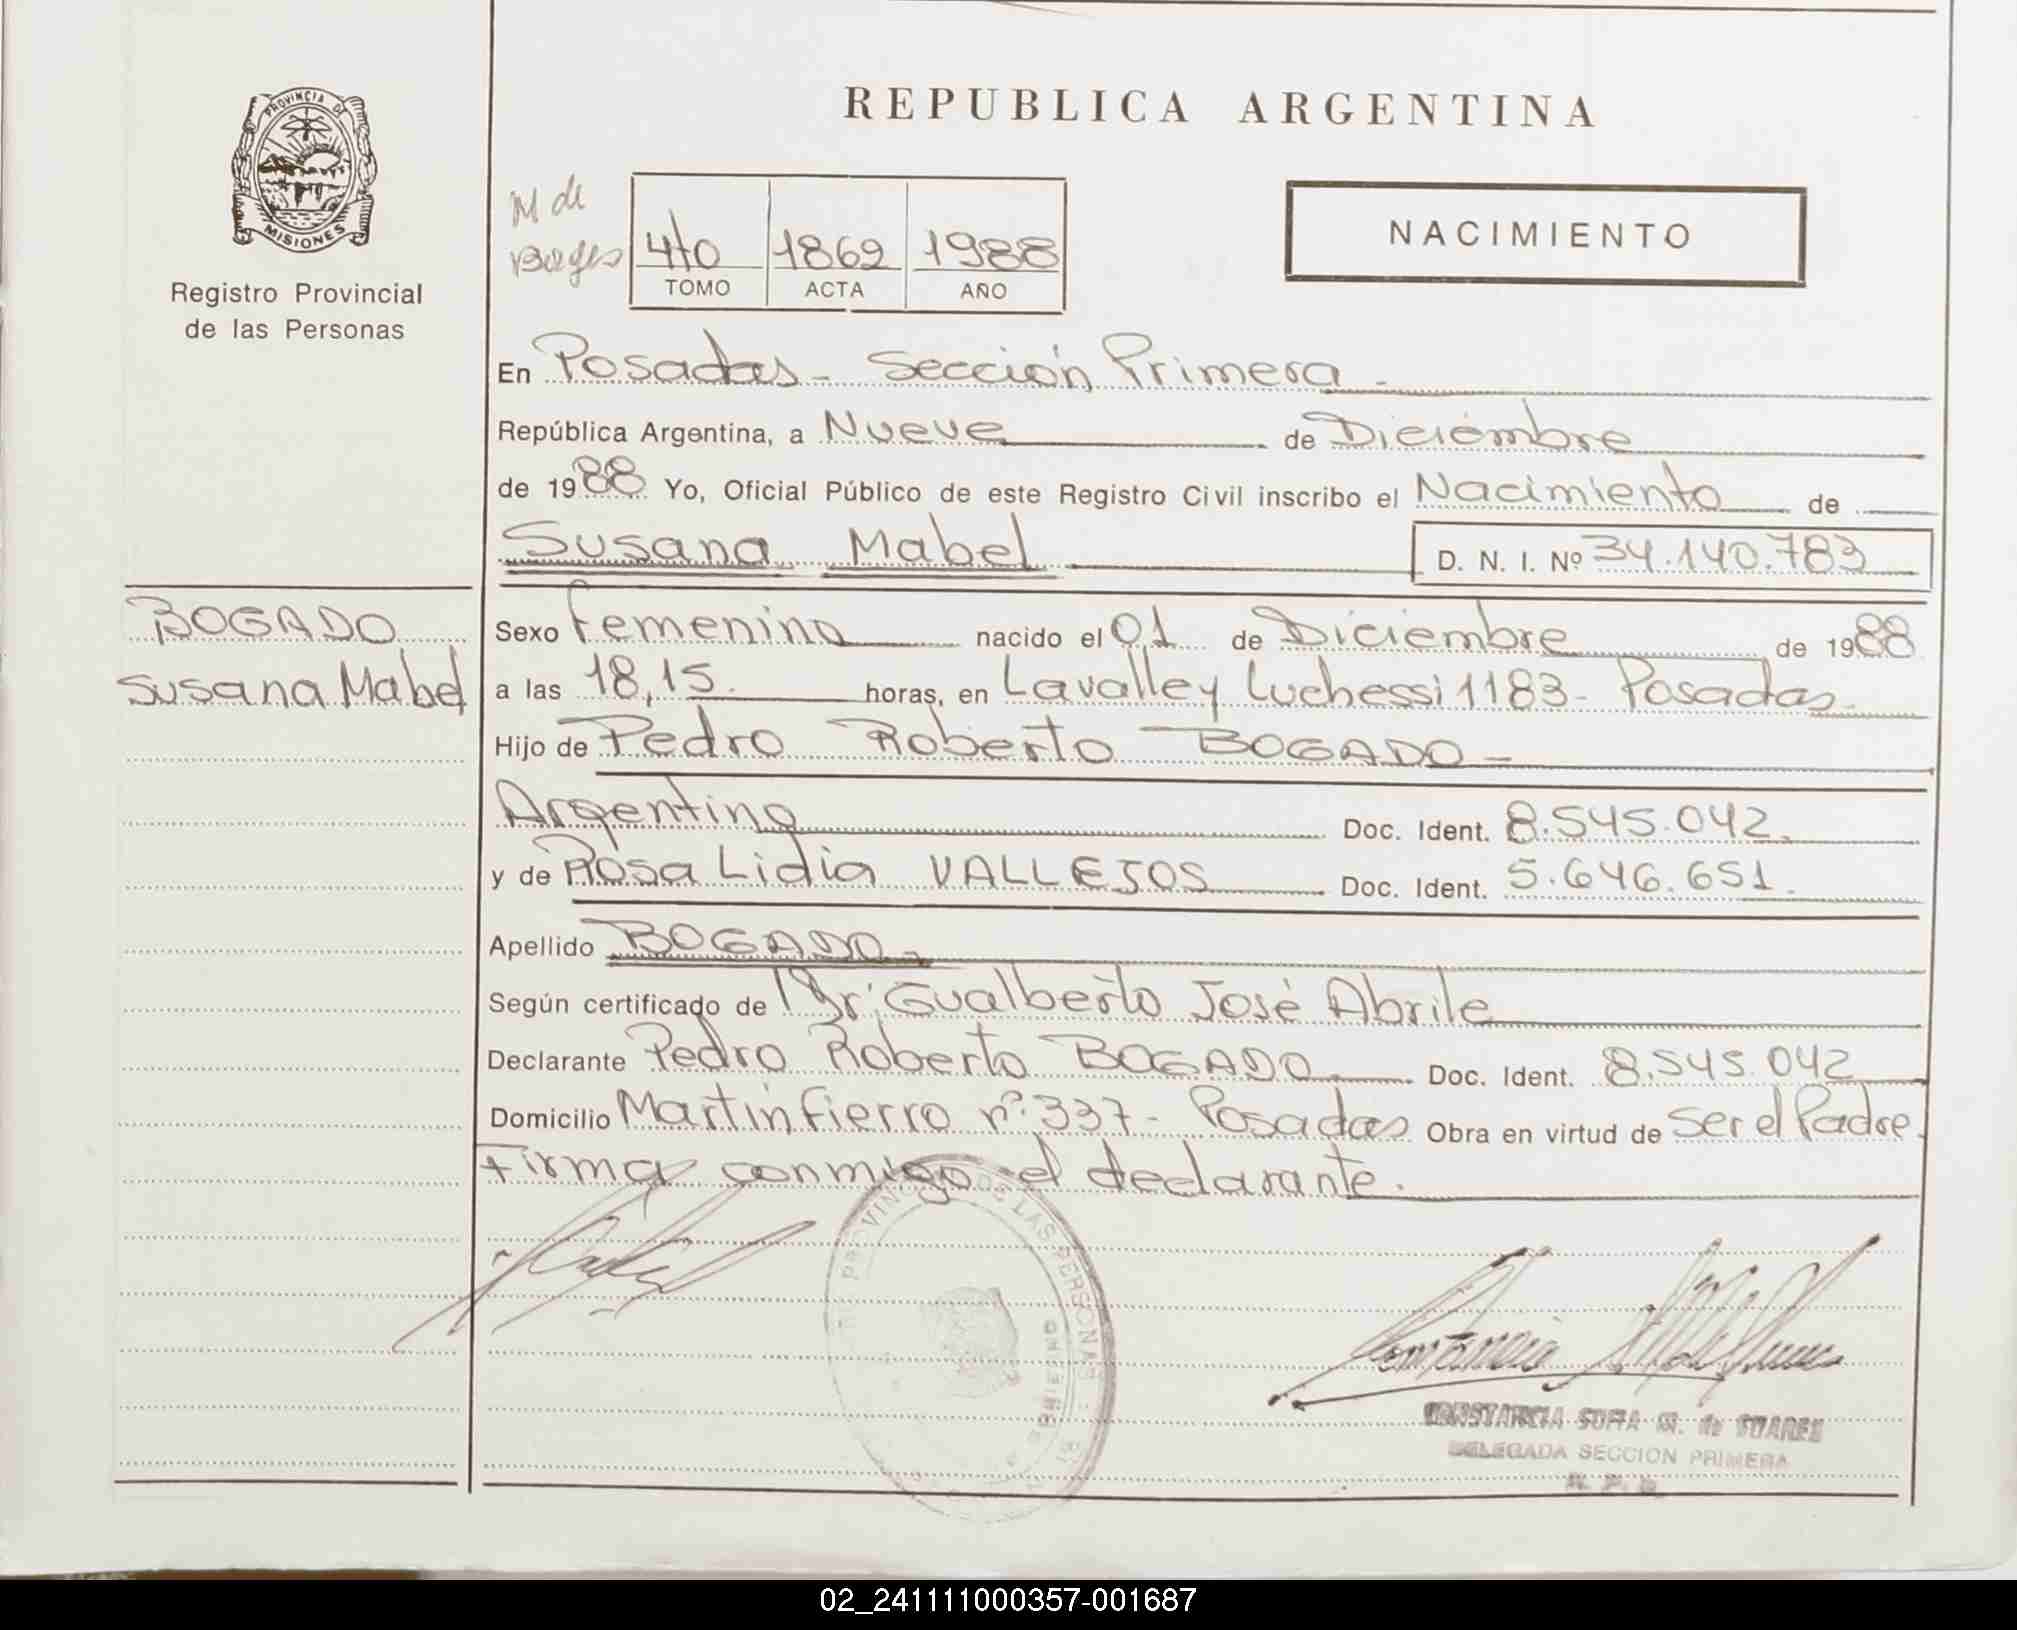 PROVINCIA DE
MISIONES
Registro Provincial
de las Personas
REPUBLICA ARGENTINA
M de
Borges
4to 1862 1988
TOMO ACTA AÑO
NACIMIENTO
En Posadas - Sección Primera -
República Argentina, a Nueve de Diciembre
de 1988 Yo, Oficial Público de este Registro Civil inscribo el Nacimiento de
Susana Mabel D. N. I. Nº 34.140.783
BOGADO
Susana Mabel
Sexo Femenino nacido el 01 de Diciembre de 1988
a las 18,15. horas, en Lavalle y Luchessi 1183 - Posadas
Hijo de Pedro Roberto BOGADO -
Argentino Doc. Ident. 8.545.042.
y de Rosa Lidia VALLEJOS Doc. Ident. 5.646.651.
Apellido BOGADO -
Según certificado de Dr. Gualberto José Abrile
Declarante Pedro Roberto BOGADO Doc. Ident. 8.545.042
Domicilio Martín Fierro nº 337 - Posadas Obra en virtud de ser el Padre.
Firma conmigo el declarante.
DE LAS PERSONAS
CONSTANCIA SOFIA M. de SUAREZ
DELEGADA SECCION PRIMERA
R. P. P.
02_241111000357-001687